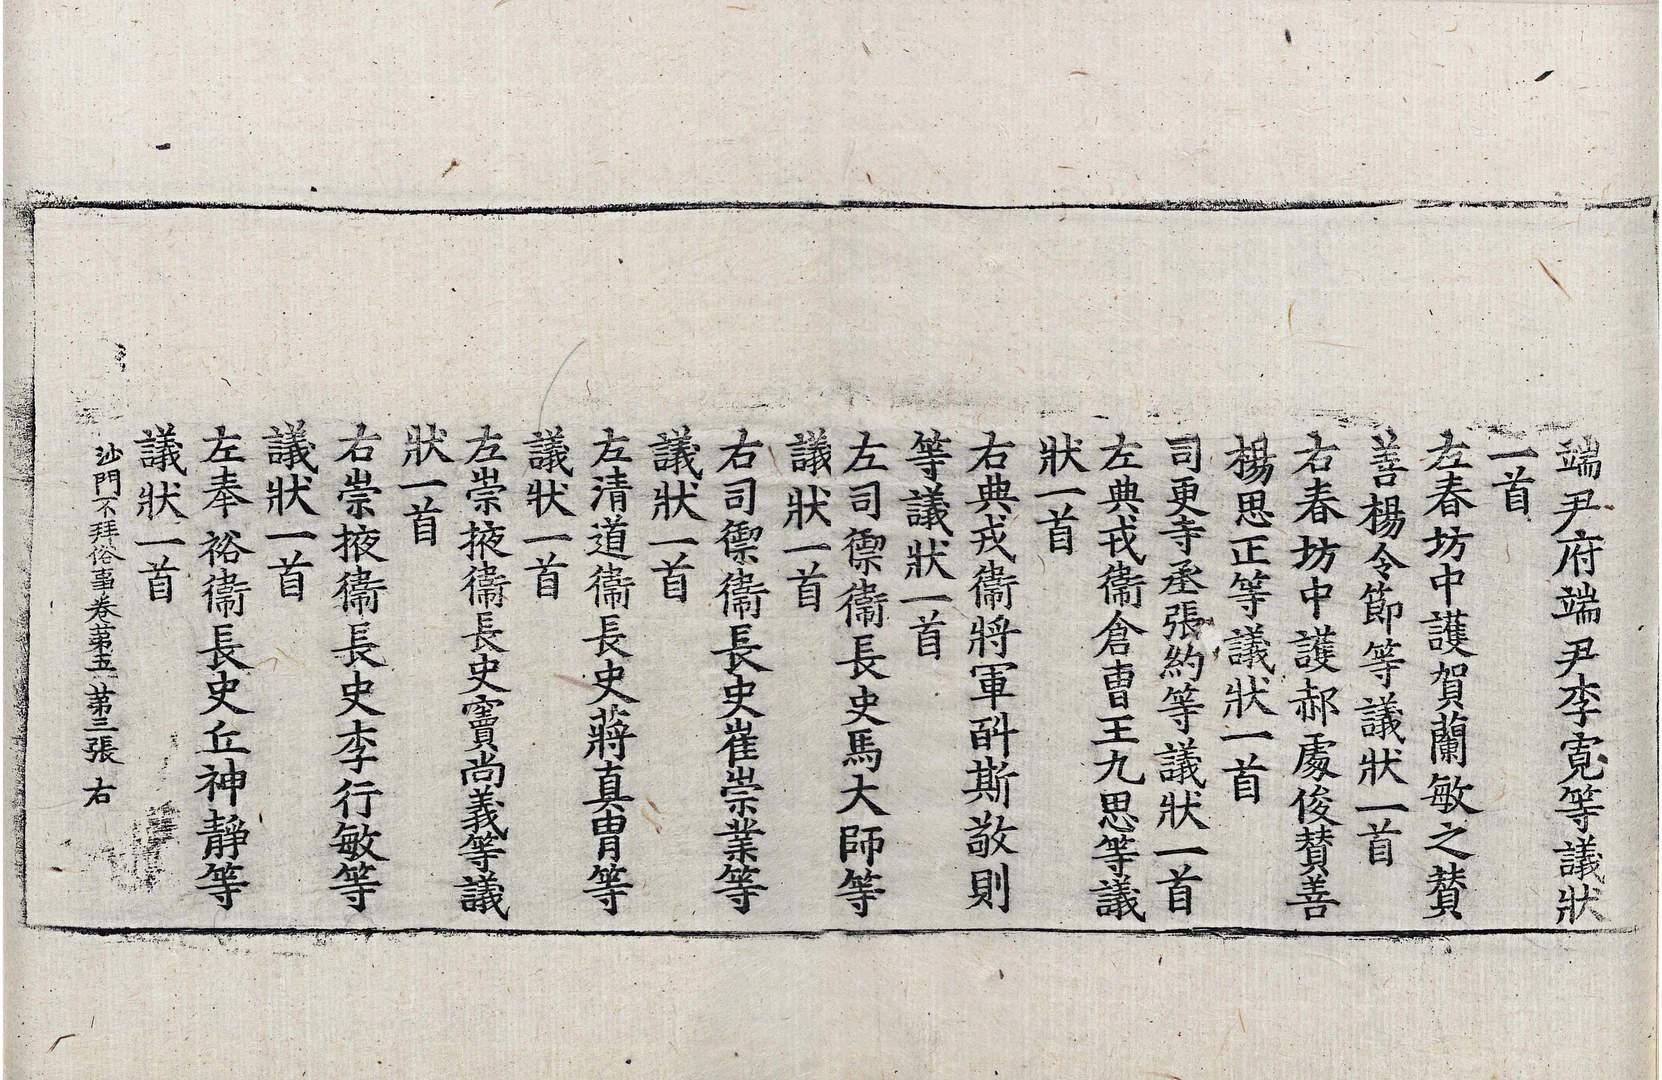 端尹府端尹李寬等議狀
一首
左春坊中護賀蘭敏之賛
善楊令節等議狀一首
右春坊中護郝處俊賛善
楊思正等議狀一首
司更寺丞張約等議狀一首
左典戎衛倉曹王九思等議
狀一首
右典戎衛將軍斛斯敬則
等議狀一首
左司禦衛長史馬大師等
議狀一首
右司禦衛長史崔崇業等
議狀一首
左清道衛長史蔣真胄等
議狀一首
左崇掖衛長史竇尚義等議
狀一首
右崇掖衛長史李行敏等
議狀一首
左奉裕衛長史丘神靜等
議狀一首
沙門不拜俗事卷苐五 苐三張 右